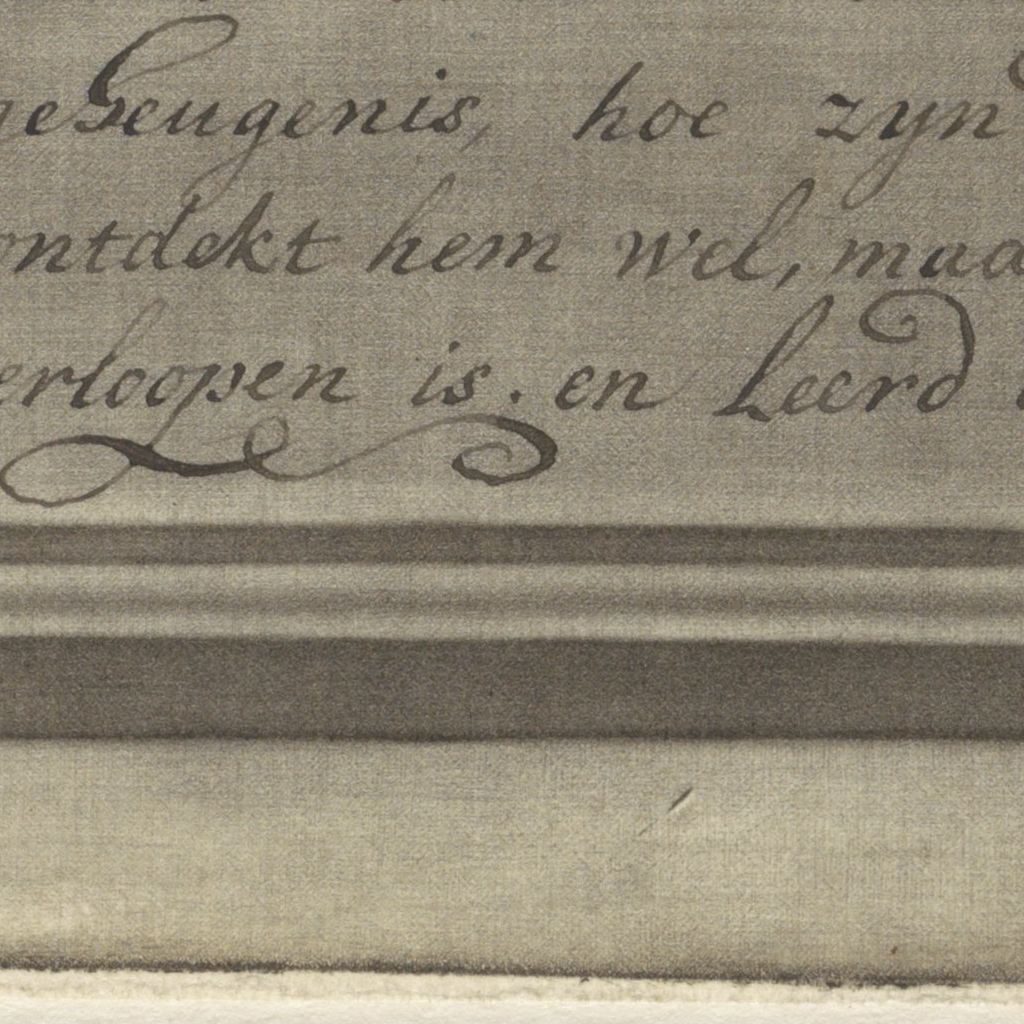 geheugenis, hoe zyn
ontdekt hem wel, maa
erloopen is. en leerd